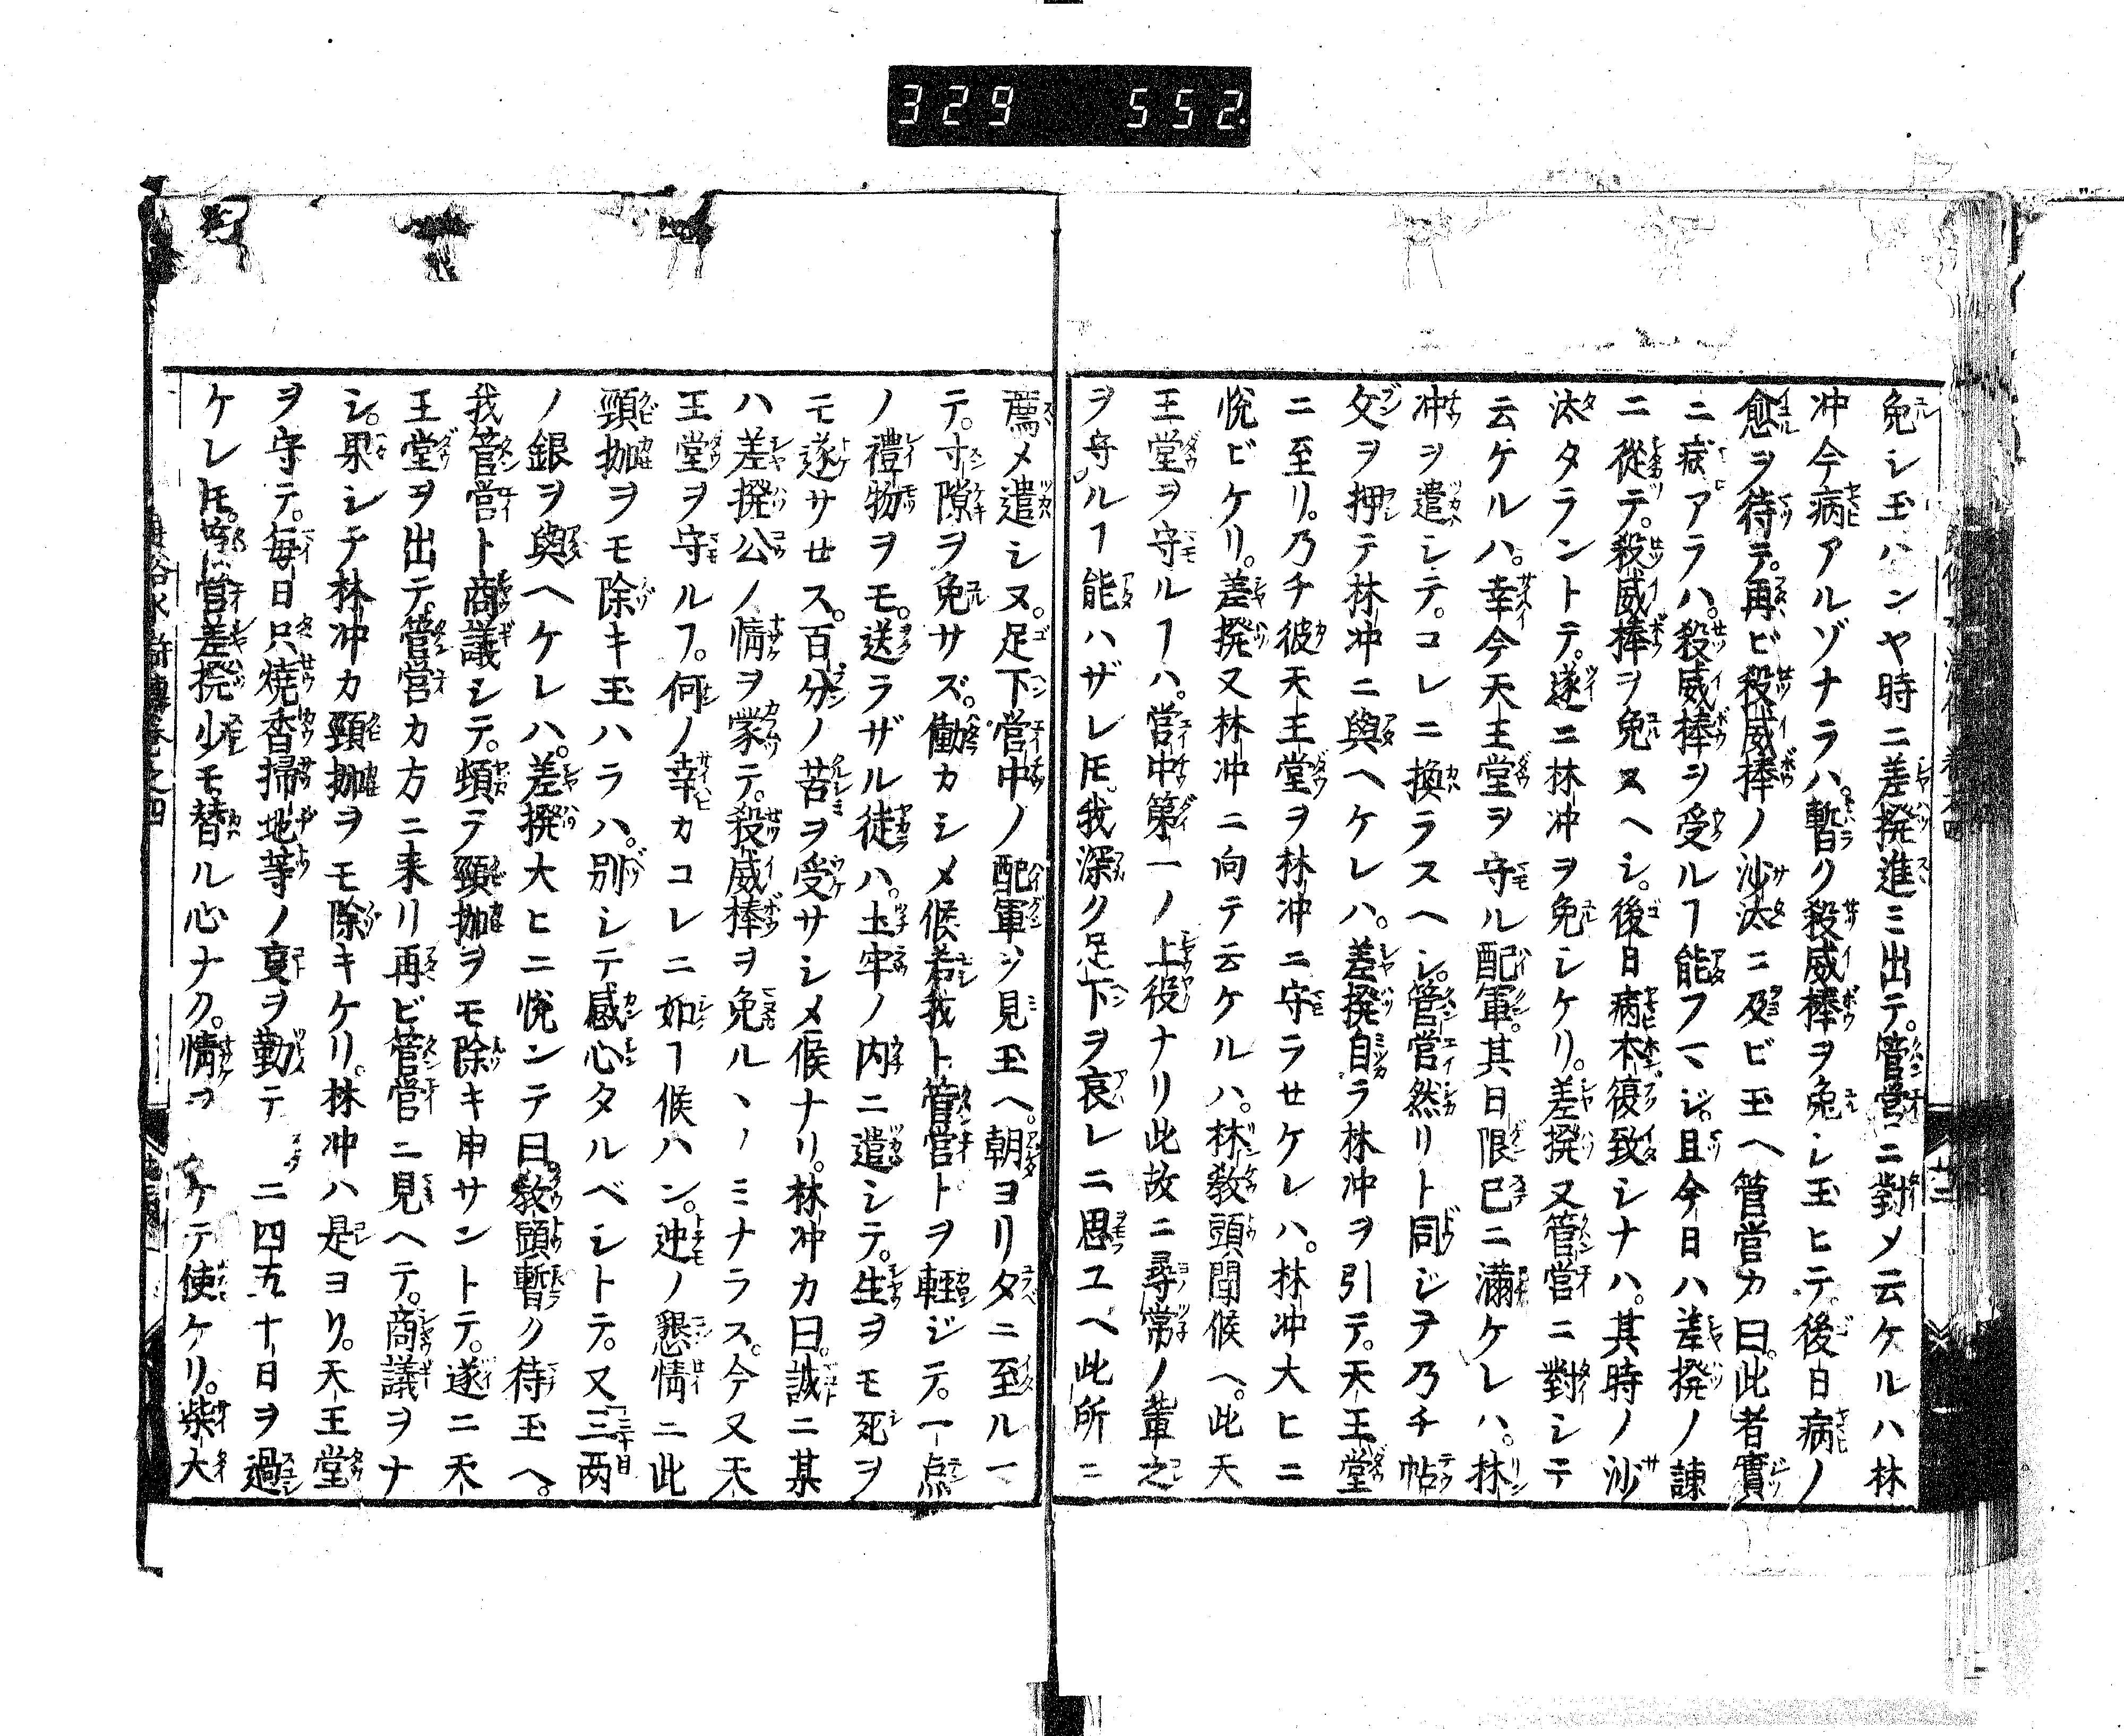 329 552
免シ玉ハンヤ時ニ差撥進ミ出テ。管営ニ對メ云ケルハ林
冲今病アルゾナラハ。暫ク殺威棒ヲ免シ玉ヒテ。後日病ノ
愈ヲ待テ。再ビ殺威棒ノ沙汰ニ及ビ玉ヘ管営カ曰。此者實
ニ病アラハ。殺威棒ヲ受ルヿ能フマジ。且今日ハ差撥ノ諌
ニ從テ。殺威棒ヲ免ヌヘシ。後日病本復致シナハ。其時ノ沙
汰タラントテ。遂ニ林冲ヲ免シケリ。差撥又管営ニ對シテ
云ケルハ。幸今天王堂ヲ守ル配軍。其日限已ニ滿ケレハ。林
冲ヲ遣シテ。コレニ換ラスヘシ。管営然リト同ジヲ乃チ帖
文ヲ押テ林冲ニ與ヘケレハ。差撥自ラ林冲ヲ引テ。天王堂
ニ至リ。乃チ彼天王堂ヲ林冲ニ守ラセケレハ。林冲大ヒニ
悦ビケリ。差撥又林冲ニ向テ云ケルハ。林教頭聞候ヘ。此天
王堂ヲ守ルヿハ。営中第一ノ上役ナリ此故ニ尋常ノ輩之
ヲ守ルヿ能ハザレ𪜈。我深ク足下ヲ哀レニ思ユヘ此所ニ
薦メ遣シヌ。足下営中ノ配軍ヲ見玉ヘ。朝ヨリタニ至ルマ
テ。寸隙ヲ免サズ。働カシメ候若我ト管営トヲ軽ジテ。一点
ノ禮物ヲモ。送ラザル徒ハ。土牢ノ内ニ遣シテ。生ヲモ死ヲ
モ遂サセス。百分ノ苦ヲ受サシメ候ナリ。林冲カ曰。誠ニ某
ハ差撥公ノ情ヲ蒙テ。殺威棒ヲ免ルヽノミナラス。今又天
王堂ヲ守ルヿ。何ノ幸カコレニ如ヿ候ハン。迚ノ懇情ニ此
頸枷ヲモ除キ玉ハラハ。別シテ感心タルベシトテ。又三两
ノ銀ヲ與ヘケレハ。差撥大ヒニ悦ンテ曰。教頭暫ク待玉ヘ。
我管営ト商議シテ。頓テ頸枷ヲモ除キ申サントテ。遂ニ天
王堂ヲ出テ。管営カ方ニ来リ再ビ管営ニ見ヘテ。商議ヲナ
シ。果シテ林冲カ頸枷ヲモ除キケリ。林冲ハ是ヨリ。天王堂
ヲ守テ。毎日只燒香掃地等ノ㕝ヲ勤テ ニ四五十日ヲ過
ケレ𪜈。管営差撥少モ替ル心ナク。情ヲ ケテ使ケリ。柴大